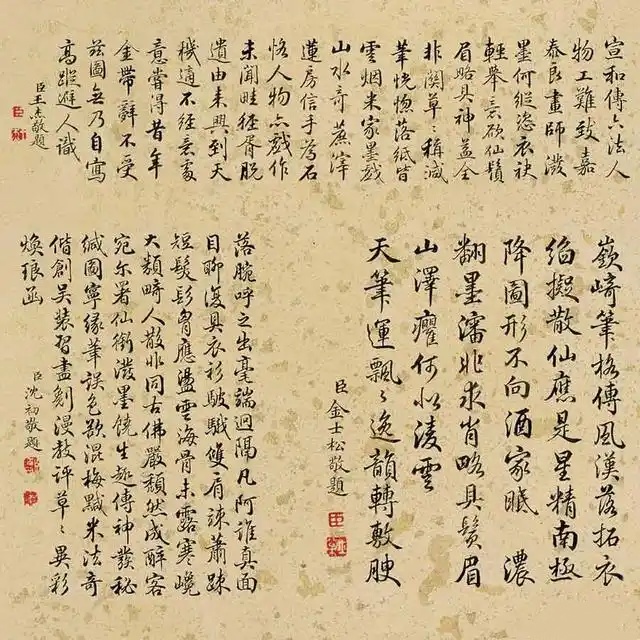 宣和傳六法人
物工難致嘉
泰良畫師潑
墨何縱恣衣袂
輕舉意欲仙鬚
眉略具神益全
非關草〻稱減
筆恍惚落紙皆
雲烟米家墨戲
山水奇蔗滓
蓮房信手為石
恪人物亦戲作
未聞畦徑胥脫
遺由来興到天
機適不經意處
意嘗得昔年
金帶辭不受
茲圖無乃自寫
高蹤避人識
臣王杰敬題
嶔崎筆格傳風漢落拓衣
絇擬散仙應是星精南極
降圖形不向酒家眠 濃
翻墨瀋非求肖略具鬚眉
山澤癯何似淩雲
天筆運飄〻逸韻轉敷腴
臣金士松敬題
落腕呼之出毫端迥隔凡阿誰真面
目聊復具衣衫皴皵雙肩竦蕭疎
短髮髟胷應盪雲海骨未露寒巉
大類畸人散非同古佛嚴頹然成醉客
宛尔署仙銜潑墨饒生趣傳神發秘
緘圖寧緣筆誤色欲混梅黬米法奇
偕創吳裝習盡劖漫教評草〻異彩
煥琅函
臣沈初敬題